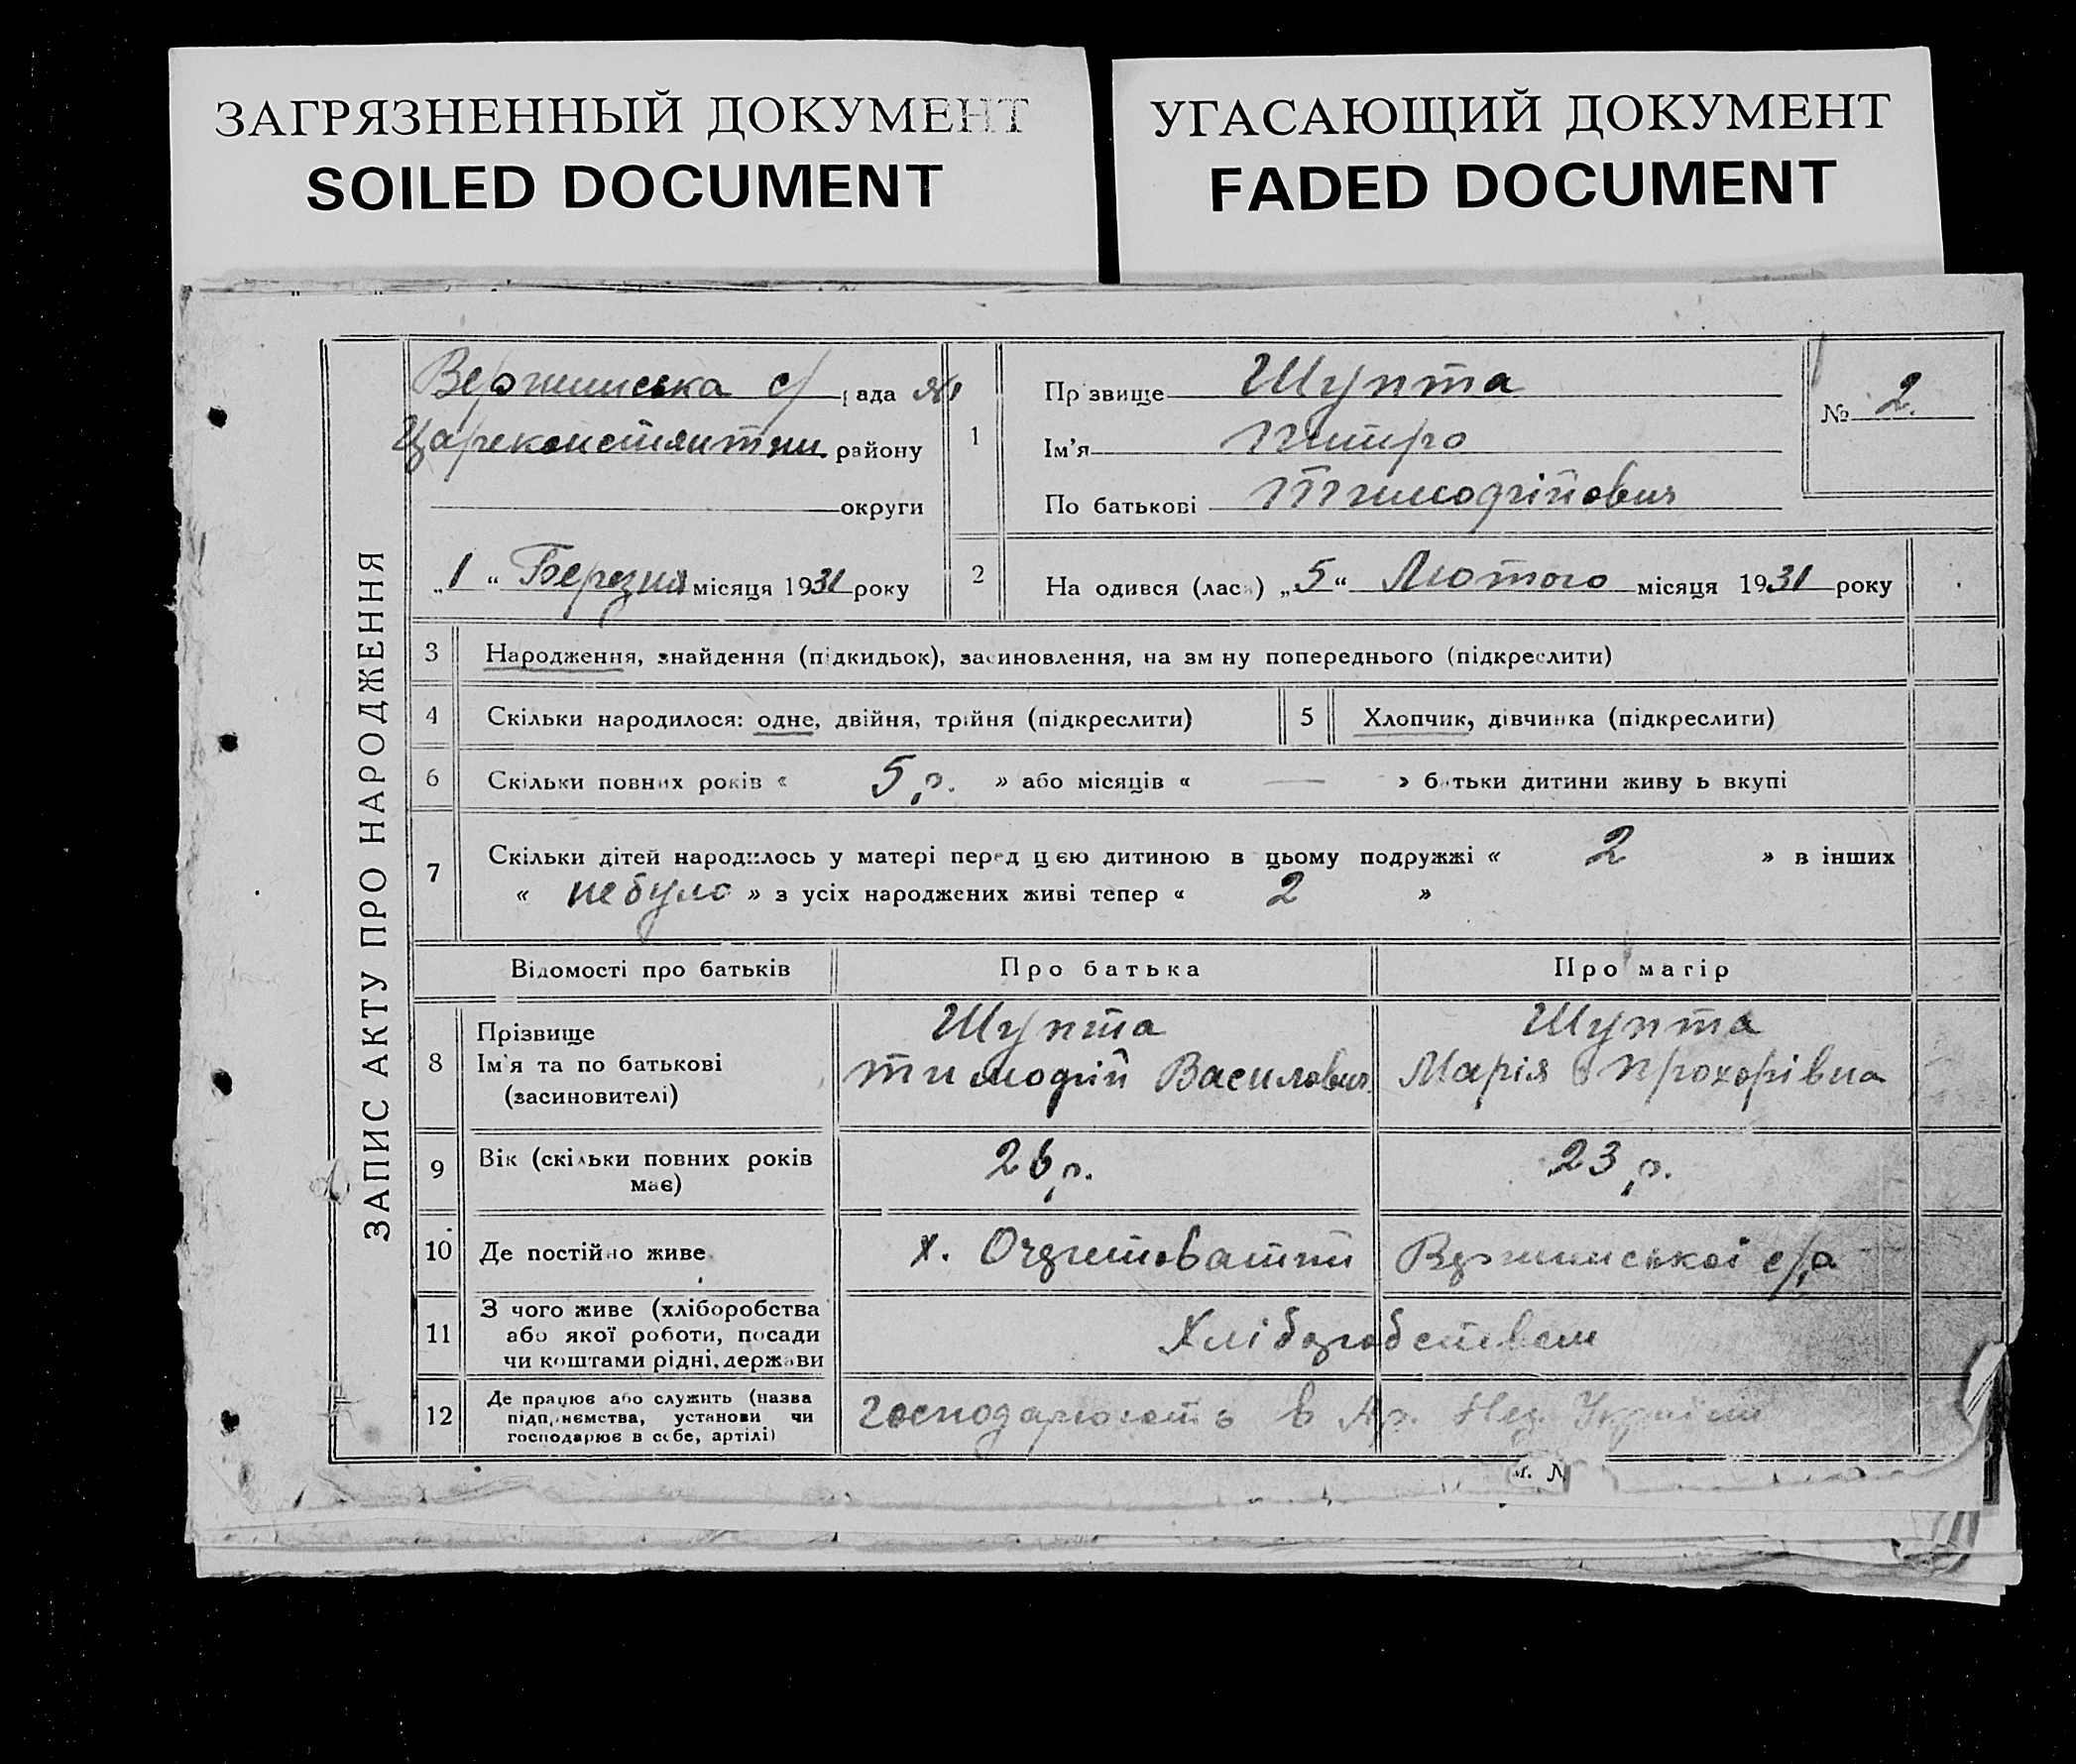 ЗАГРЯЗНЕННЫЙ ДОКУМЕНТ
SOILED DOCUMENT
УГАСАЮЩИЙ ДОКУМЕНТ
FADED DOCUMENT
ЗАПИС АКТУ ПРО НАРОДЖЕННЯ
с/ рада
району
округи
„1“ Березня місяця 1931 року
1
Прізвище Шупта
Ім'я
По батькові Тимофійович
№ 2.
2 Народився (лася) „5“ Лютого місяця 1931 року
3 Народження, знайдення (підкидьок), засиновлення, на зміну попереднього (підкреслити)
4 Скільки народилося: одне, двійня, трійня (підкреслити)
5 Хлопчик, дівчинка (підкреслити)
6 Скільки повних років « 5 р. » або місяців « — » батьки дитини живуть вкупі
7 Скільки дітей народилось у матері перед цією дитиною в цьому подружжі « 2 » в інших
« не було » з усіх народжених живі тепер « 2 »
Відомості про батьків Про батька Про матір
8 Прізвище
Ім'я та по батькові
(засиновителі)
Шупта
Тимофій Василович
Шупта
Марія Прохорівна
9 Вік (скільки повних років
має)
26 р. 23 р.
10 Де постійно живе х. с/р
11 З чого живе (хліборобства
або якої роботи, посади
чи коштами рідні, держави
Хліборобством
12 Де працює або служить (назва
підприємства, установи чи
господарює в себе, артілі)
господарюють в України